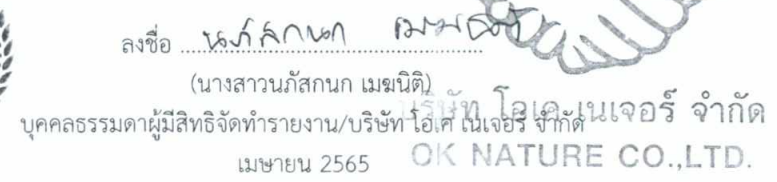 ลงชื่อ นภัสกนก เมฆนิติ
(นางสาวนภัสกนก เมฆนิติ)
บุคคลธรรมดาผู้มีสิทธิจัดทำรายงาน/บริษัท โอเค เนเจอร์ จำกัด
เมษายน 2565
บริษัท โอเค เนเจอร์ จำกัด
OK NATURE CO.,LTD.